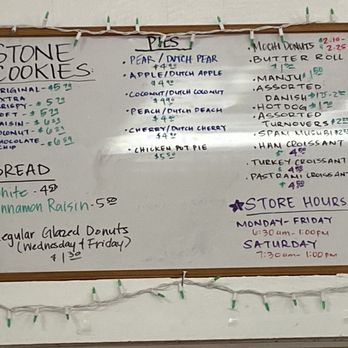 STONE
COOKIES
ORIGINAL - $5.75
EXTRA
CRISPY - $5.75
SOFT -
RAISIN -
COCONUT - $6.25
CHOCOLATE
CHIP
BREAD
White - 4.00
Cinnamon Raisin - 5.50
Regular Glazed Donuts
(Wednesday & Friday)
$1.30
PIES
• PEAR / DUTCH PEAR
• APPLE / DUTCH APPLE
• COCONUT / DUTCH COCONUT
• PEACH / DUTCH PEACH
• CHERRY / DUTCH CHERRY
• CHICKEN POT PIE
• MOCHI DONUTS $2.10 -
2.25
• BUTTER ROLL
• MANJU
• ASSORTED
DANISH
• HOTDOG
• ASSORTED
TURNOVERS
• SPAM MUSUBI
• HAM CROISSANT
• TURKEY CROISSANT
• PASTRAMI CROISSANT
STORE HOURS
MONDAY - FRIDAY
6:30am - 1:00pm
SATURDAY
7:30am - 1:00pm